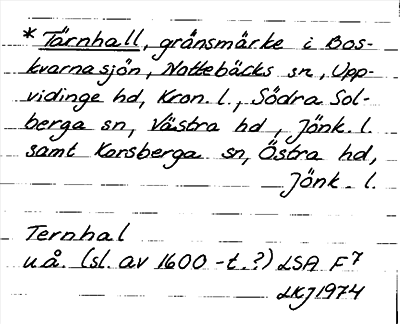 * Tärnhall, gränsmärke i Bos-
kvarnasjön, Nottebäcks sn, Upp-
vidinge hd, Kron. l., Södra Sol-
berga sn, Västra hd, Jönk. l.
samt Korsberga sn, Östra hd,
Jönk. l.
Ternhal
u.å. (sl. av 1600-t.?) LSA F7
LKJ 1974